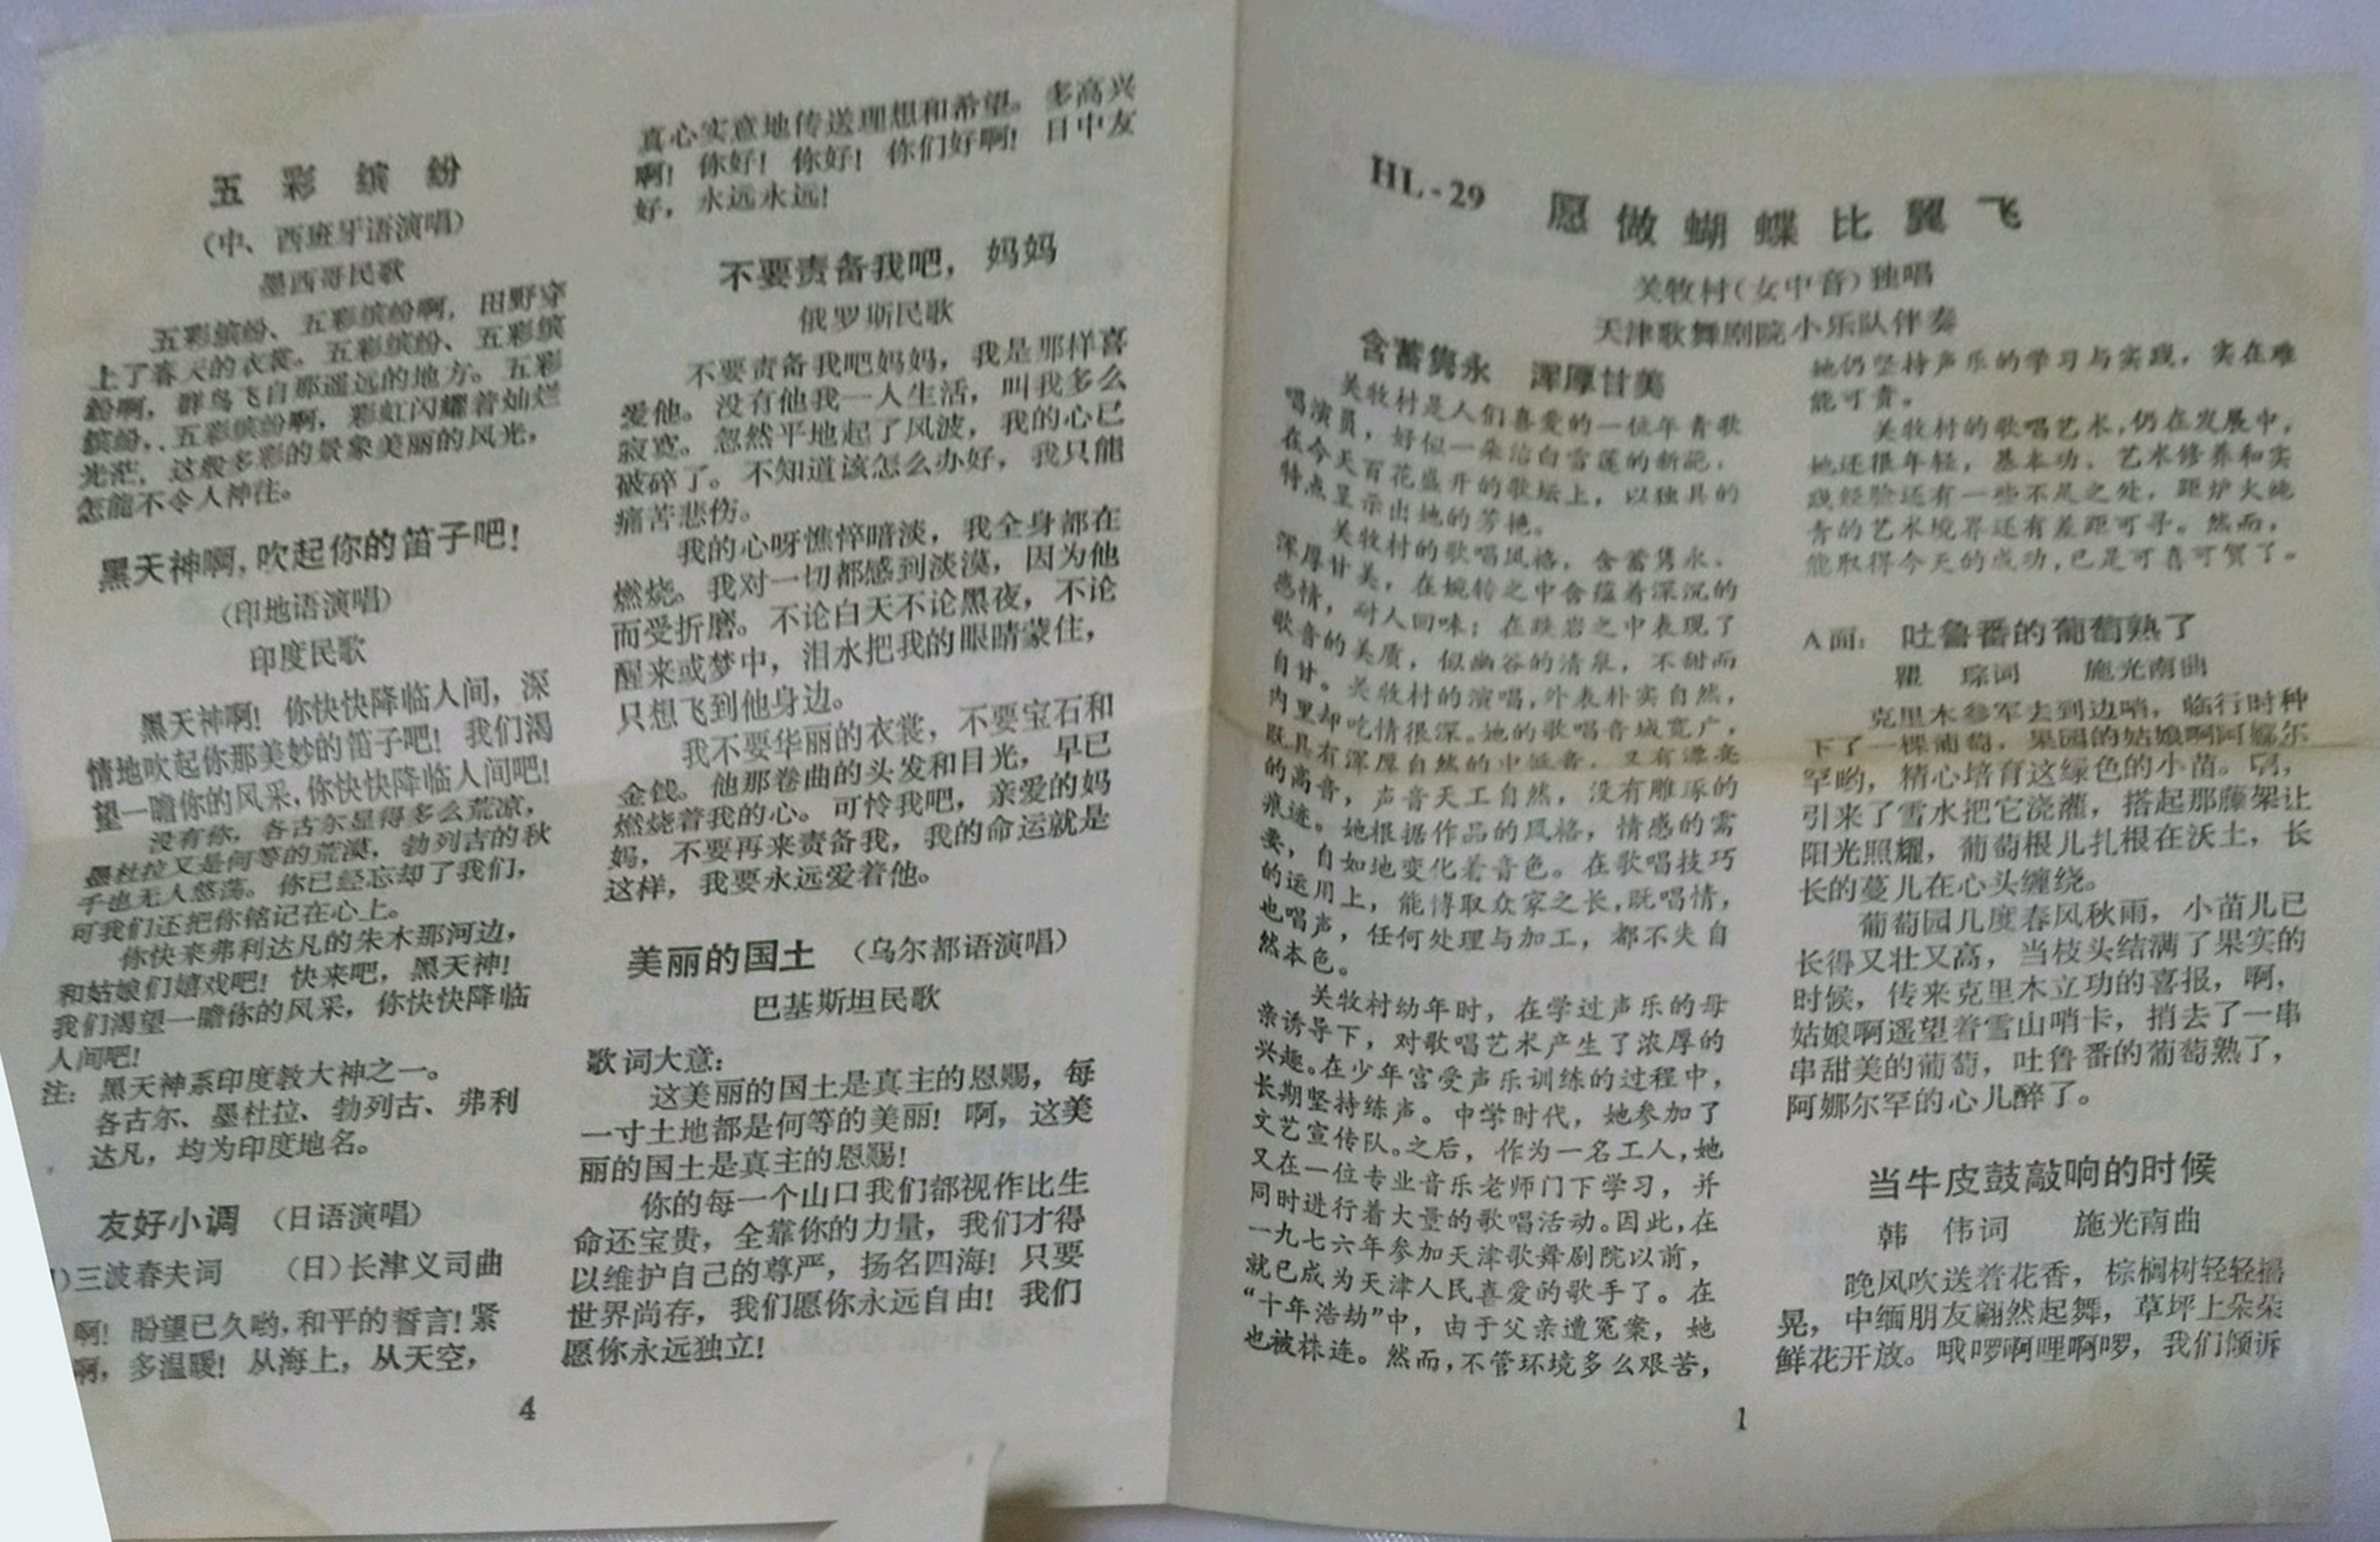 五彩缤纷
（中、西班牙语演唱）
墨西哥民歌
五彩缤纷、五彩缤纷啊，田野穿
上了春天的衣裳。五彩缤纷、五彩缤
纷啊，群鸟飞自那遥远的地方。五彩
缤纷，五彩缤纷啊，彩虹闪耀着灿烂
光茫，这般多彩的景象美丽的风光，
怎能不令人神往。
黑天神啊，吹起你的笛子吧！
（印地语演唱）
印度民歌
黑天神啊！你快快降临人间，深
情地吹起你那美妙的笛子吧！我们渴
望一瞻你的风采，你快快降临人间吧！
没有你，各古尔显得多么荒凉，
墨杜拉又是何等的荒漠，勃列吉的秋
千也无人悠荡。你已经忘却了我们，
可我们还把你铭记在心上。
你快来弗利达凡的朱木那河边，
和姑娘们嬉戏吧！快来吧，黑天神！
我们渴望一瞻你的风采，你快快降临
人间吧！
注：黑天神系印度教大神之一。
各古尔、墨杜拉、勃列古、弗利
达凡，均为印度地名。
友好小调（日语演唱）
）三波春夫词　（日）长津义司曲
啊！盼望已久哟，和平的誓言！紧
啊，多温暖！从海上，从天空，
真心实意地传送理想和希望。多高兴
啊！你好！你好！你们好啊！日中友
好，永远永远！
不要责备我吧，妈妈
俄罗斯民歌
不要责备我吧妈妈，我是那样喜
爱他。没有他我一人生活，叫我多么
寂寞。忽然平地起了风波，我的心已
破碎了。不知道该怎么办好，我只能
痛苦悲伤。
我的心呀憔悴暗淡，我全身都在
燃烧。我对一切都感到淡漠，因为他
而受折磨。不论白天不论黑夜，不论
醒来或梦中，泪水把我的眼睛蒙住，
只想飞到他身边。
我不要华丽的衣裳，不要宝石和
金钱。他那卷曲的头发和目光，早已
燃烧着我的心。可怜我吧，亲爱的妈
妈，不要再来责备我，我的命运就是
这样，我要永远爱着他。
美丽的国土（乌尔都语演唱）
巴基斯坦民歌
歌词大意：
这美丽的国土是真主的恩赐，每
一寸土地都是何等的美丽！啊，这美
丽的国土是真主的恩赐！
你的每一个山口我们都视作比生
命还宝贵，全靠你的力量，我们才得
以维护自己的尊严，扬名四海！只要
世界尚存，我们愿你永远自由！我们
愿你永远独立！
4
HL-29　愿做蝴蝶比翼飞
关牧村（女中音）独唱
天津歌舞剧院小乐队伴奏
含蓄隽永　浑厚甘美
关牧村是人们喜爱的一位年青歌
唱演员，好似一朵洁白雪莲的新葩，
在今天百花盛开的歌坛上，以独具的
特点显示出她的芳艳。
关牧村的歌唱风格，含蓄隽永、
浑厚甘美，在婉转之中含蕴着深沉的
感情，耐人回味；在跌宕之中表现了
歌音的美质，似幽谷的清泉，不甜而
自甘。关牧村的演唱，外表朴实自然，
内里却吃情很深。她的歌唱音域宽广，
既具有浑厚自然的中低音，又有漂亮
的高音，声音天工自然，没有雕琢的
痕迹。她根据作品的风格，情感的需
要，自如地变化着音色。在歌唱技巧
的运用上，能博取众家之长，既唱情，
也唱声，任何处理与加工，都不失自
然本色。
关牧村幼年时，在学过声乐的母
亲诱导下，对歌唱艺术产生了浓厚的
兴趣。在少年宫受声乐训练的过程中，
长期坚持练声。中学时代，她参加了
文艺宣传队。之后，作为一名工人，她
又在一位专业音乐老师门下学习，并
同时进行着大量的歌唱活动。因此，在
一九七六年参加天津歌舞剧院以前，
就已成为天津人民喜爱的歌手了。在
“十年浩劫”中，由于父亲遭冤案，她
也被株连。然而，不管环境多么艰苦，
她仍坚持声乐的学习与实践，实在难
能可贵。
关牧村的歌唱艺术，仍在发展中，
她还很年轻，基本功、艺术修养和实
践经验还有一些不足之处，距炉火纯
青的艺术境界还有差距可寻。然而，
能取得今天的成功，已是可喜可贺了。
A面：吐鲁番的葡萄熟了
瞿　琮词　施光南曲
克里木参军去到边哨，临行时种
下了一棵葡萄，果园的姑娘啊阿娜尔
罕哟，精心培育这绿色的小苗。啊，
引来了雪水把它浇灌，搭起那藤架让
阳光照耀，葡萄根儿扎根在沃土，长
长的蔓儿在心头缠绕。
葡萄园几度春风秋雨，小苗儿已
长得又壮又高，当枝头结满了果实的
时候，传来克里木立功的喜报，啊，
姑娘啊遥望着雪山哨卡，捎去了一串
串甜美的葡萄，吐鲁番的葡萄熟了，
阿娜尔罕的心儿醉了。
当牛皮鼓敲响的时候
韩　伟词　施光南曲
晚风吹送着花香，棕榈树轻轻摇
晃，中缅朋友翩然起舞，草坪上朵朵
鲜花开放。哦啰啊哩啊啰，我们倾诉
1